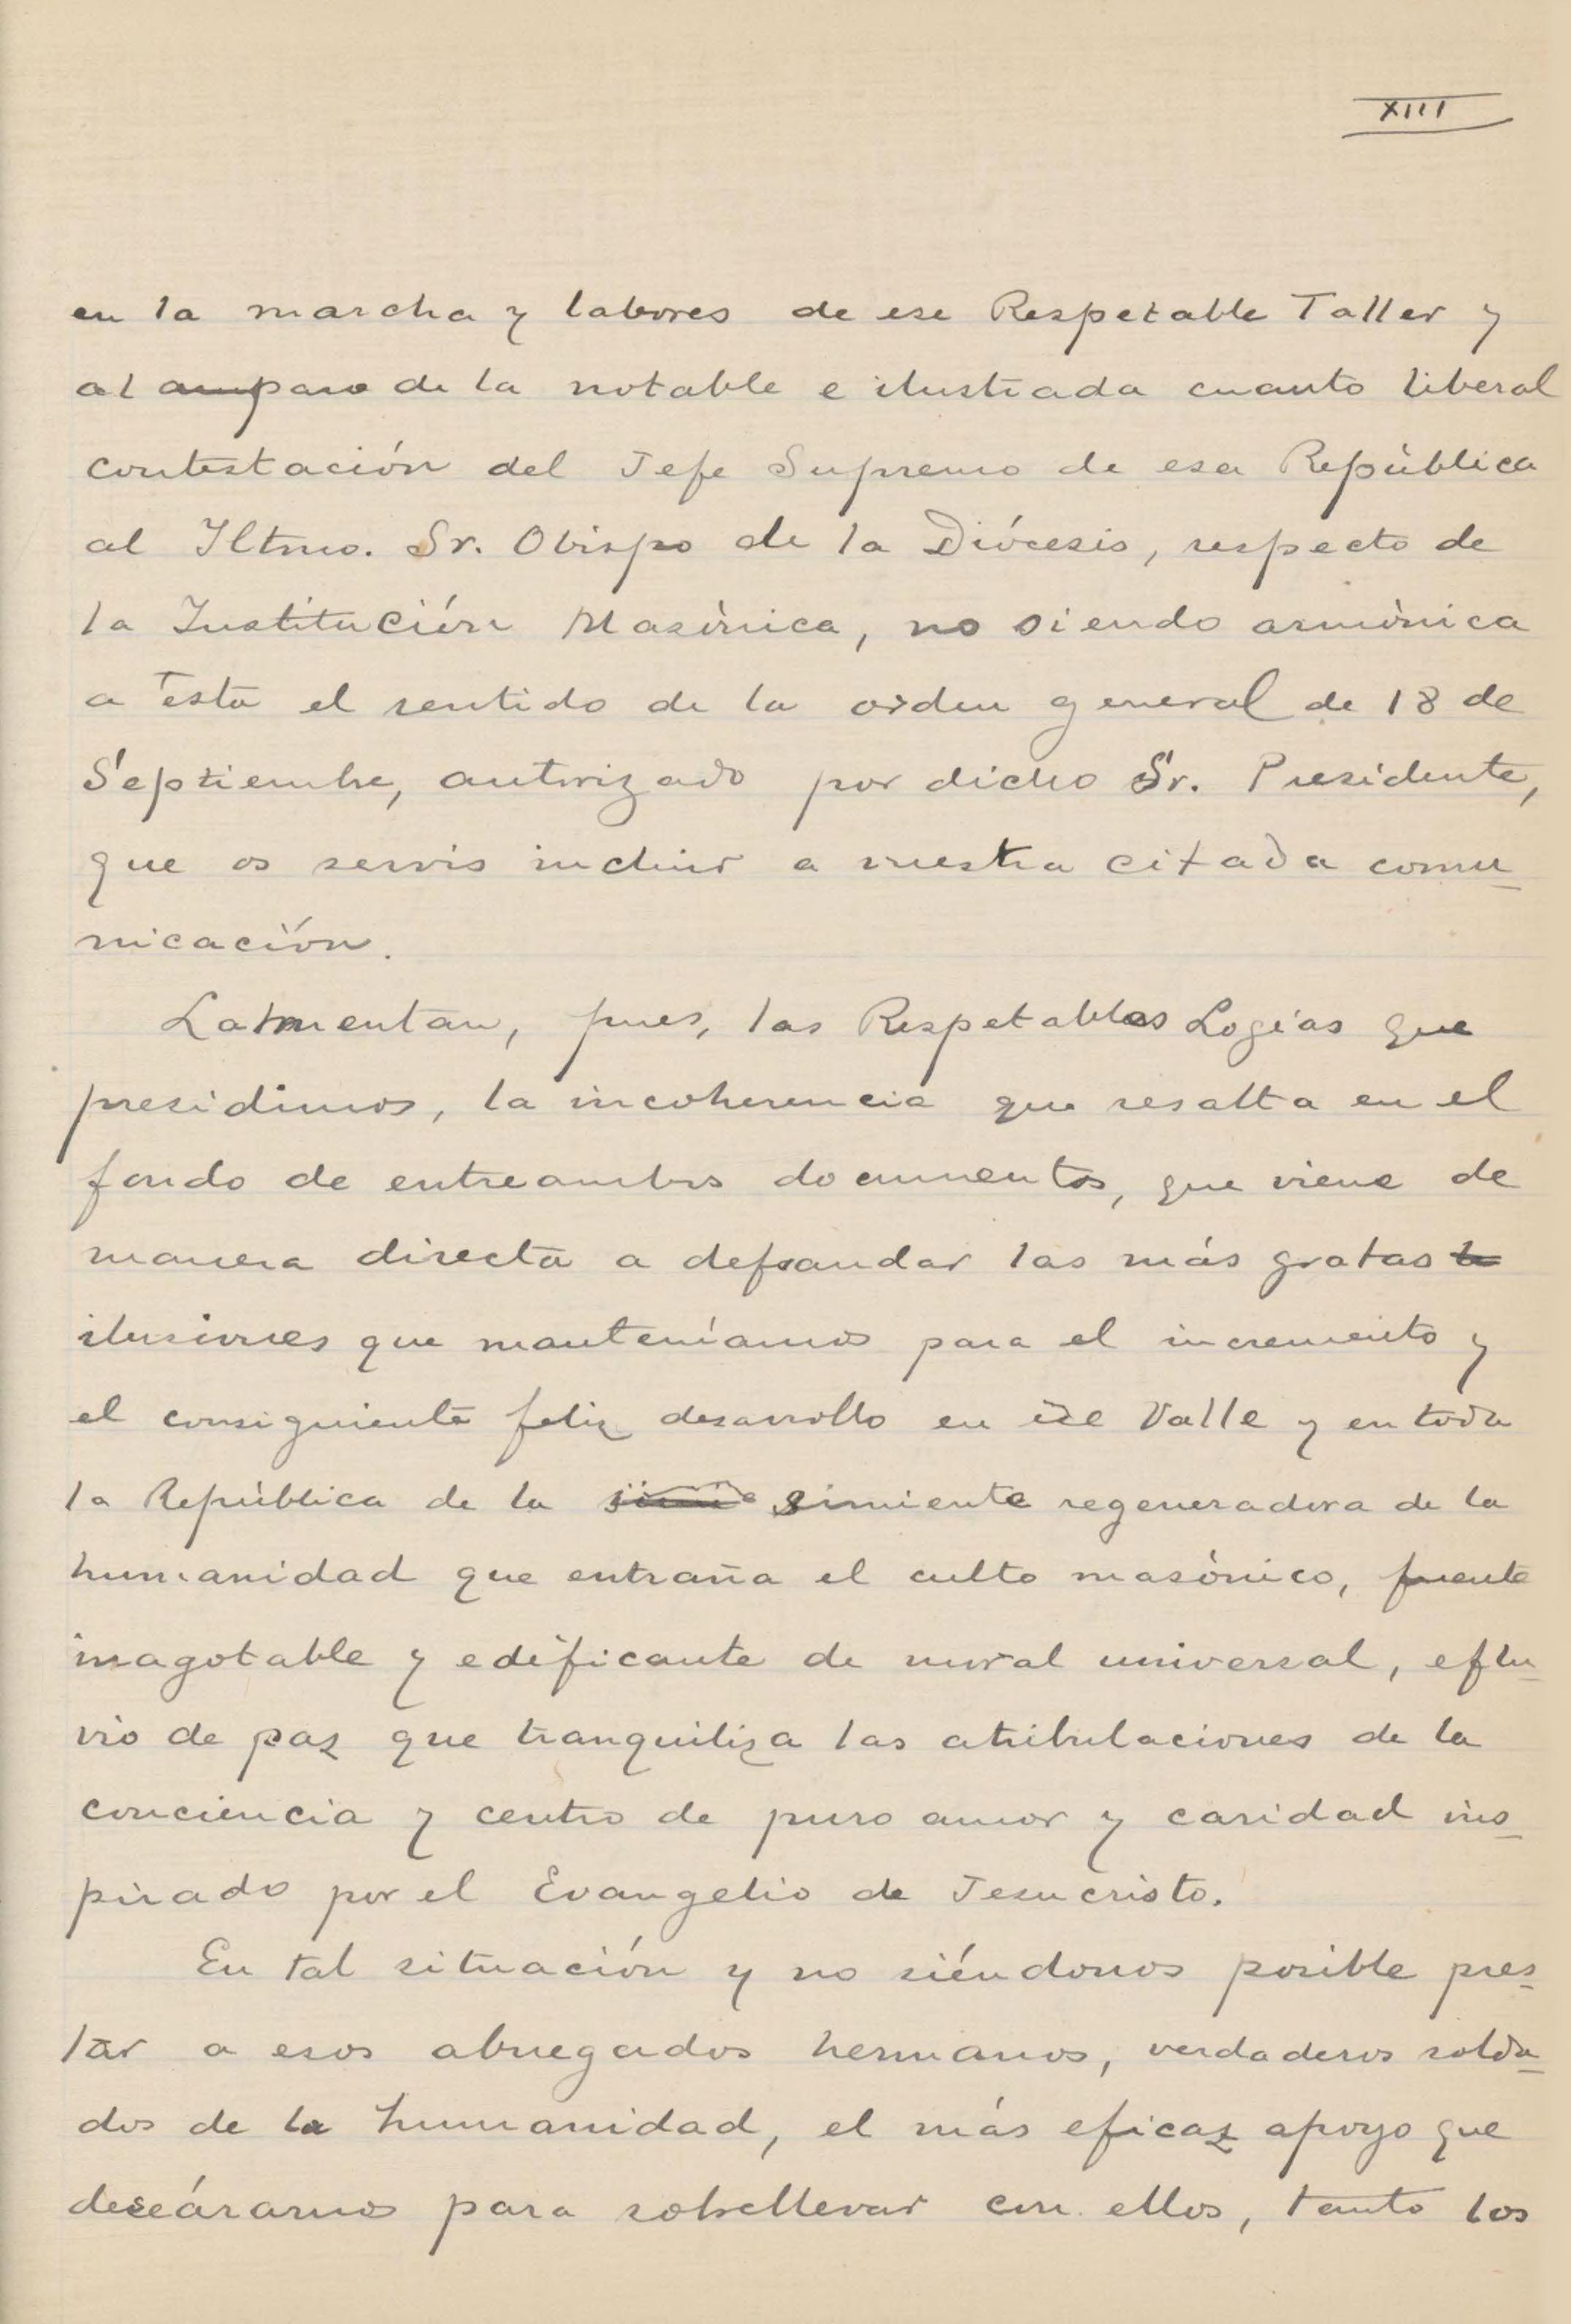 XIII
en la marcha y labores de ese Respetable Taller y
al amparo de la notable e ilustrada cuanto liberal
contestación del Jefe Supremo de esa República
al Iltmo. Sr. Obispo de la Diócesis, respecto de
la Institución Masónica, no siendo armónica
a ésta el sentido de la orden general de 18 de
Septiembre, autorizado por dicho Sr. Presidente,
que os servis incluir a vuestra citada comu-
nicación.
Lamentan, pues, las Respetables Logías que
presidimos, la incoherencia que resalta en el
fondo de entreambos documentos, que viene de
manera directa a defraudar las más gratas
ilusiones que manteníamos para el incremento y
el consiguiente feliz desarrollo en ese Valle y en toda
la República de la simiente regeneradora de la
humanidad que entraña el culto masónico, fuente
inagotable y edificante de moral universal, eflu-
vio de paz que tranquiliza las atribulaciones de la
conciencia y centro de puro amor y caridad ins-
pirado por el Evangelio de Jesucristo.
En tal situación y no siéndonos posible pres-
tar a esos abnegados hermanos, verdaderos solda-
dos de la humanidad, el más eficaz apoyo que
deseáramos para sobrellevar con ellos, tanto los